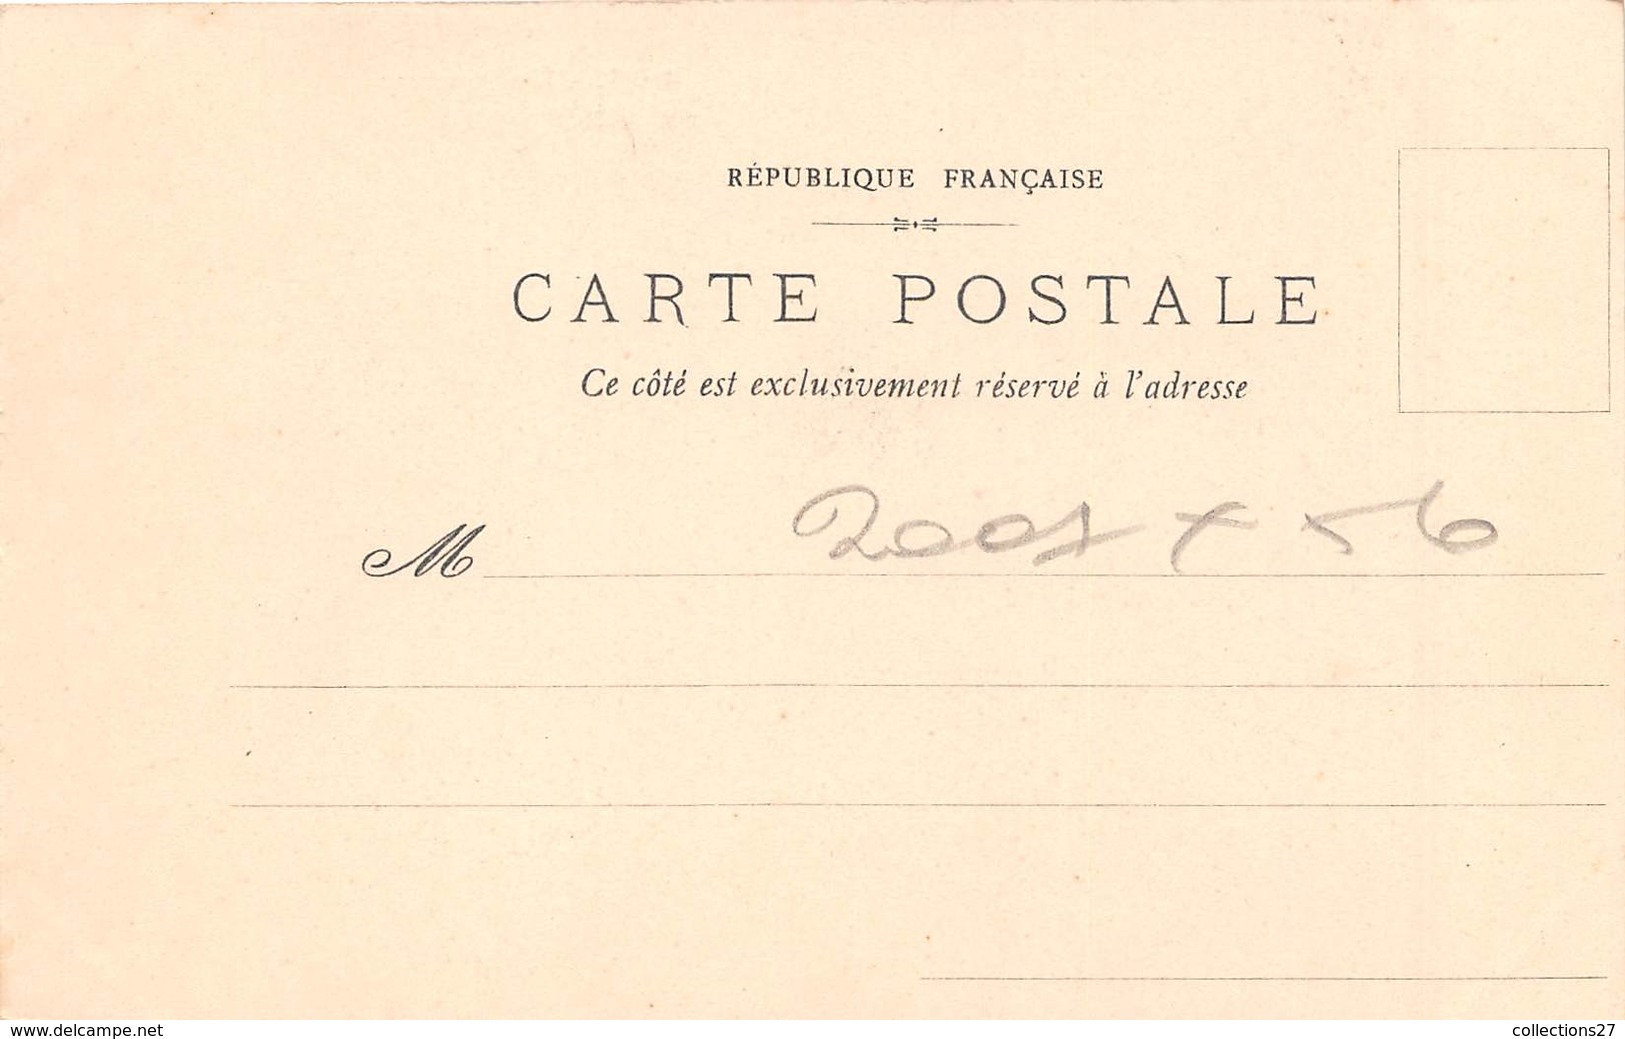 RÉPUBLIQUE FRANÇAISE
CARTE POSTALE
Ce côté est exclusivement réservé à l'adresse
M
www.delcampe.net
collections27